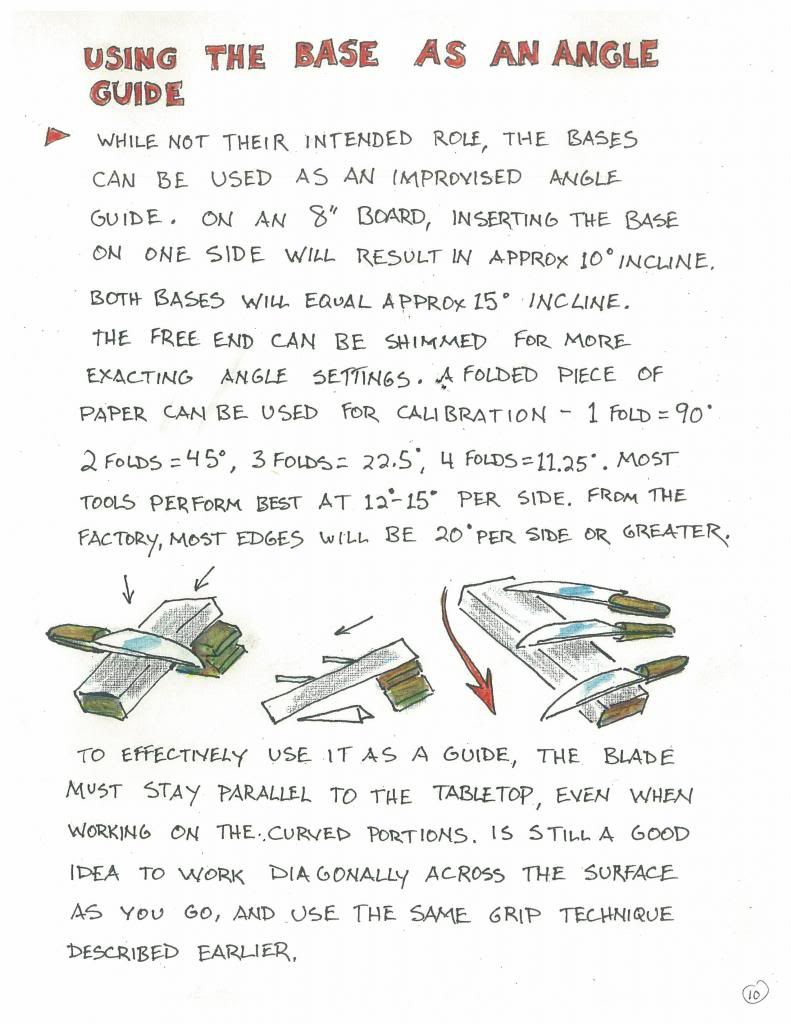 USING THE BASE AS AN ANGLE
GUIDE
WHILE NOT THEIR INTENDED ROLE, THE BASES
CAN BE USED AS AN IMPROVISED ANGLE
GUIDE. ON AN 8" BOARD, INSERTING THE BASE
ON ONE SIDE WILL RESULT IN APPROX 10° INCLINE.
BOTH BASES WILL EQUAL APPROX 15° INCLINE.
THE FREE END CAN BE SHIMMED FOR MORE
EXACTING ANGLE SETTINGS. A FOLDED PIECE OF
PAPER CAN BE USED FOR CALIBRATION - 1 FOLD = 90°
2 FOLDS = 45°, 3 FOLDS = 22.5°, 4 FOLDS = 11.25°. MOST
TOOLS PERFORM BEST AT 12°-15° PER SIDE. FROM THE
FACTORY, MOST EDGES WILL BE 20° PER SIDE OR GREATER.
TO EFFECTIVELY USE IT AS A GUIDE, THE BLADE
MUST STAY PARALLEL TO THE TABLETOP, EVEN WHEN
WORKING ON THE CURVED PORTIONS. IS STILL A GOOD
IDEA TO WORK DIAGONALLY ACROSS THE SURFACE
AS YOU GO, AND USE THE SAME GRIP TECHNIQUE
DESCRIBED EARLIER.
10